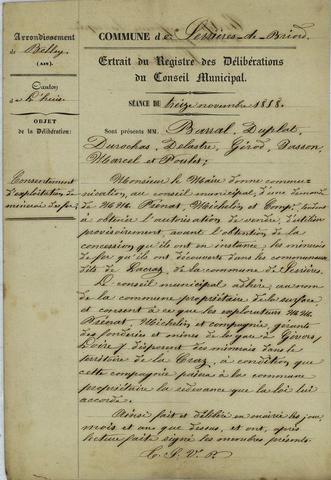 Arrondissement
de Belley
(AIN)
Canton
de Lhuis
OBJET
de la Délibération:
Consentement
d'exploitation de
minerai de fer.
COMMUNE de Serrières-de-Briord
Extrait du Registre des Délibérations
du Conseil Municipal.
SÉANCE DU treize novembre 1858.
Sont présents MM. Barral, Duplat,
Durochas, Delastre, Gérod, Basson,
Marcel et
Monsieur le Maire donne commu-
nication, au conseil municipal, d'une demande
de MM. Prénat, Michelin et Compie, tendant
à obtenir l'autorisation de vendre, d'utiliser
provisoirement, avant l'obtention de la
concession qu'ils ont en instance, les minerais
de fer qu'ils ont découverts dans les communaux
dits de de la commune de Serrières.
Le conseil municipal adhère, au nom
de la commune propriétaire de la surface
et consent à ce que les explorateurs MM.
Prénat, Michelin et compagnie, gérants
des fonderies et mines de la gare, à Givors,
Loire, disposent des minerais dans le
territoire de la Craz, à condition que
cette compagnie paiera à la commune
propriétaire la redevance que la loi lui
accorde.
Ainsi fait et délibéré en mairie les jour,
mois et an que dessus, et ont, après
lecture faite signé les membres présents.
T. S. V. P.